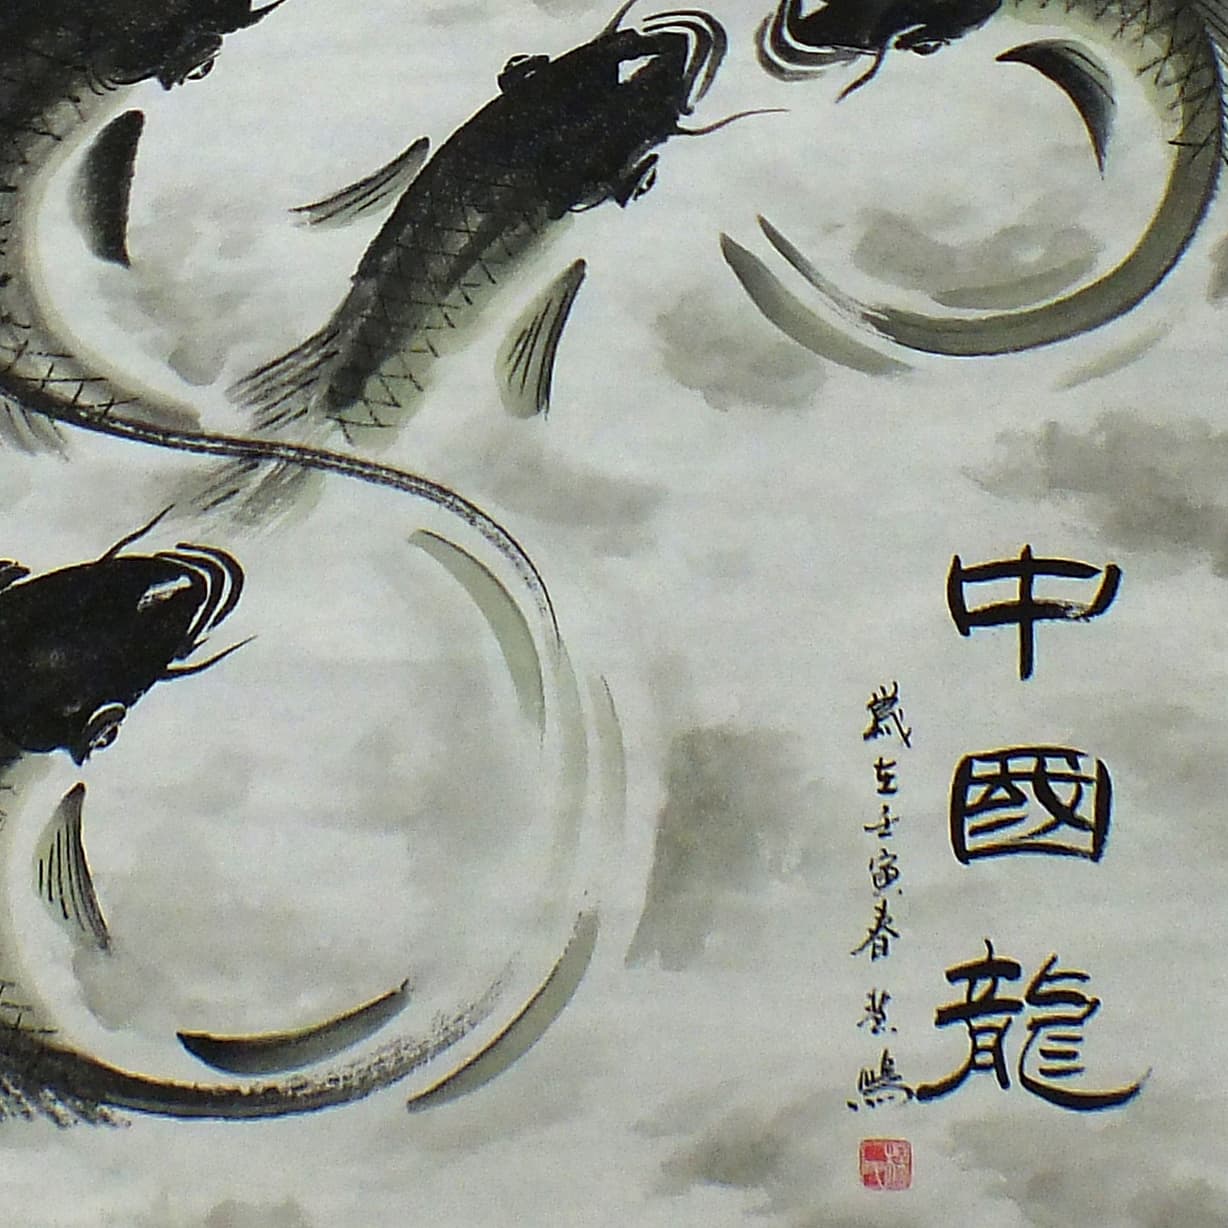 中國龍
歲在壬寅春